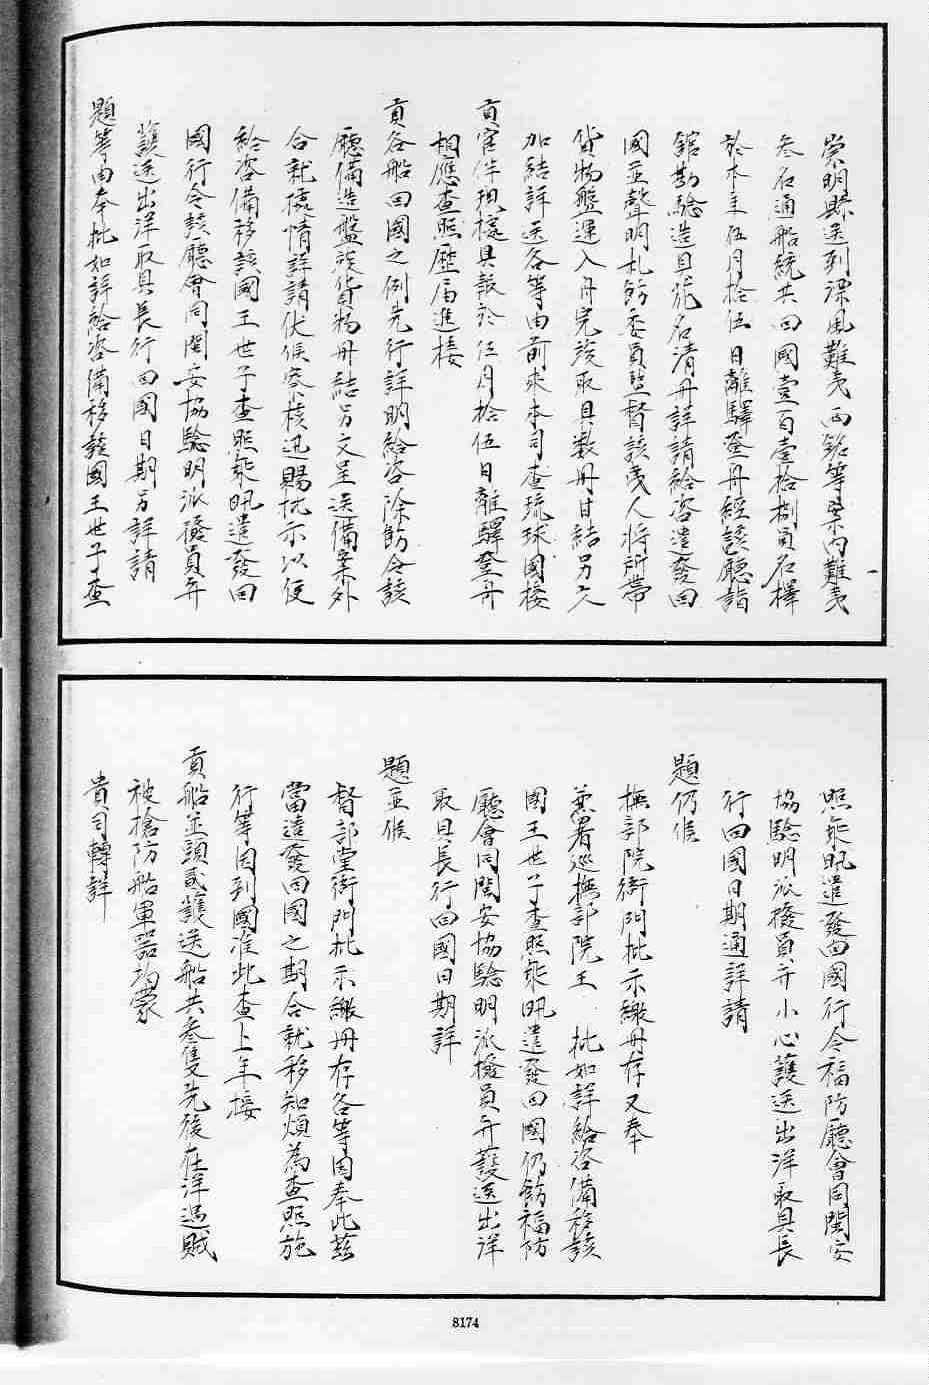 崇明縣送到漂風難夷西銘等案內難夷
叁名通船統共回國壹百壹拾捌員名擇
於本年伍月拾伍日離驛登舟經該廳詣
館勘驗造具花名清冊詳請給咨遣發回
國並聲明札飭委員監督該夷人將所帶
貨物盤運入舟完竣取具數冊甘結另文
加結詳送各等由前來本司查琉球國接
貢官伴現據具報於伍月拾伍日離驛登舟
相應查照歷屆進接
貢各船回國之例先行詳明給咨除飭令該
廳備造盤驗貨物冊結另文呈送備案外
合就據情詳請伏候察核迅賜批示以便
給咨備移該國王世子查照乘汛遣發回
國行令該廳會同閩安協驗明派撥員弁
護送出洋取具長行回國日期另詳請
題等由奉批如詳給咨備移該國王世子查
照乘汛遣發回國行令福防廳會同閩安
協驗明派撥員弁小心護送出洋取具長
行回國日期通詳請
題仍候
撫部院衙門批示繳冊存又奉
兼署巡撫部院王 批如詳給咨備移該
國王世子查照乘汛遣發回國仍飭福防
廳會同閩安協驗明派撥員弁護送出洋
取具長行回國日期詳
題並候
督部堂衙門批示繳冊存各等因奉此茲
當遣發回國之期合就移知煩為查照施
行等因到國准此查上年接
貢船並頭貳護送船共叁隻先後在洋遇賊
被搶防船軍器均蒙
貴司轉詳
8174